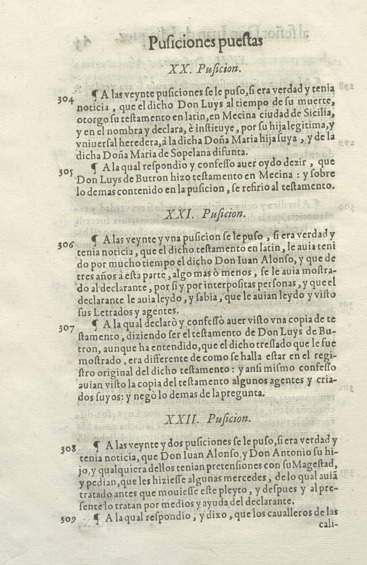 Pusiciones puestas
XX. Pusicion.
304 ¶ A las veynte pusiciones se le puso, si era verdad y tenia
noticia, que el dicho Don Luys al tiempo de su muerte,
otorgo su testamento en latin, en Mecina ciudad de Sicilia,
y en el nombra y declara, è instituye, por su hija legitima, y
vniuersal heredera, à la dicha Doña Maria hija suya, y de la
dicha Doña Maria de Sopelana difunta.
305 ¶ A la qual respondio y confesso auer oydo dezir, que
Don Luys de Butron hizo testamento en Mecina: y sobre
lo demas contenido en la pusicion, se refirio al testamento.
XXI. Pusicion.
306 ¶ A las veynte y vna pusicion se le puso, si era verdad y
tenia noticia, que el dicho testamento en latin, le auia teni
do por mucho tiempo el dicho Don Iuan Alonso, y que de
tres años à esta parte, algo mas ò menos, se le auia mostra-
do al declarante, por si y por interpositas personas, y que el
declarante le auia leydo, y sabia, que le auian leydo y visto
sus Letrados y agentes.
307 ¶ A la qual declarò y confessò auer visto vna copia de te
stamento, diziendo ser el testamento de Don Luys de Bu-
tron, aunque ha entendido, que el dicho treslado que le fue
mostrado, era diferente de como se halla estar en el regi-
stro original del dicho testamento: y ansi mismo confesso
auian visto la copia del testamento algunos agentes y cria-
dos suyos: y negò lo demas de la pregunta.
XXII. Pusicion.
308 ¶ A las veynte y dos pusiciones se le puso, si era verdad y
tenia noticia, que Don Iuan Alonso, y Don Antonio su hi-
jo, y qualquiera dellos tenian pretensiones con su Magestad,
y pedian, que les hiziesse algunas mercedes, de lo qual auiã
tratado antes que mouiesse este pleyto, y despues y al pre-
sente lo tratan por medios y ayuda del declarante.
309 ¶ A la qual respondio, y dixo, que los caualleros de las
cali-